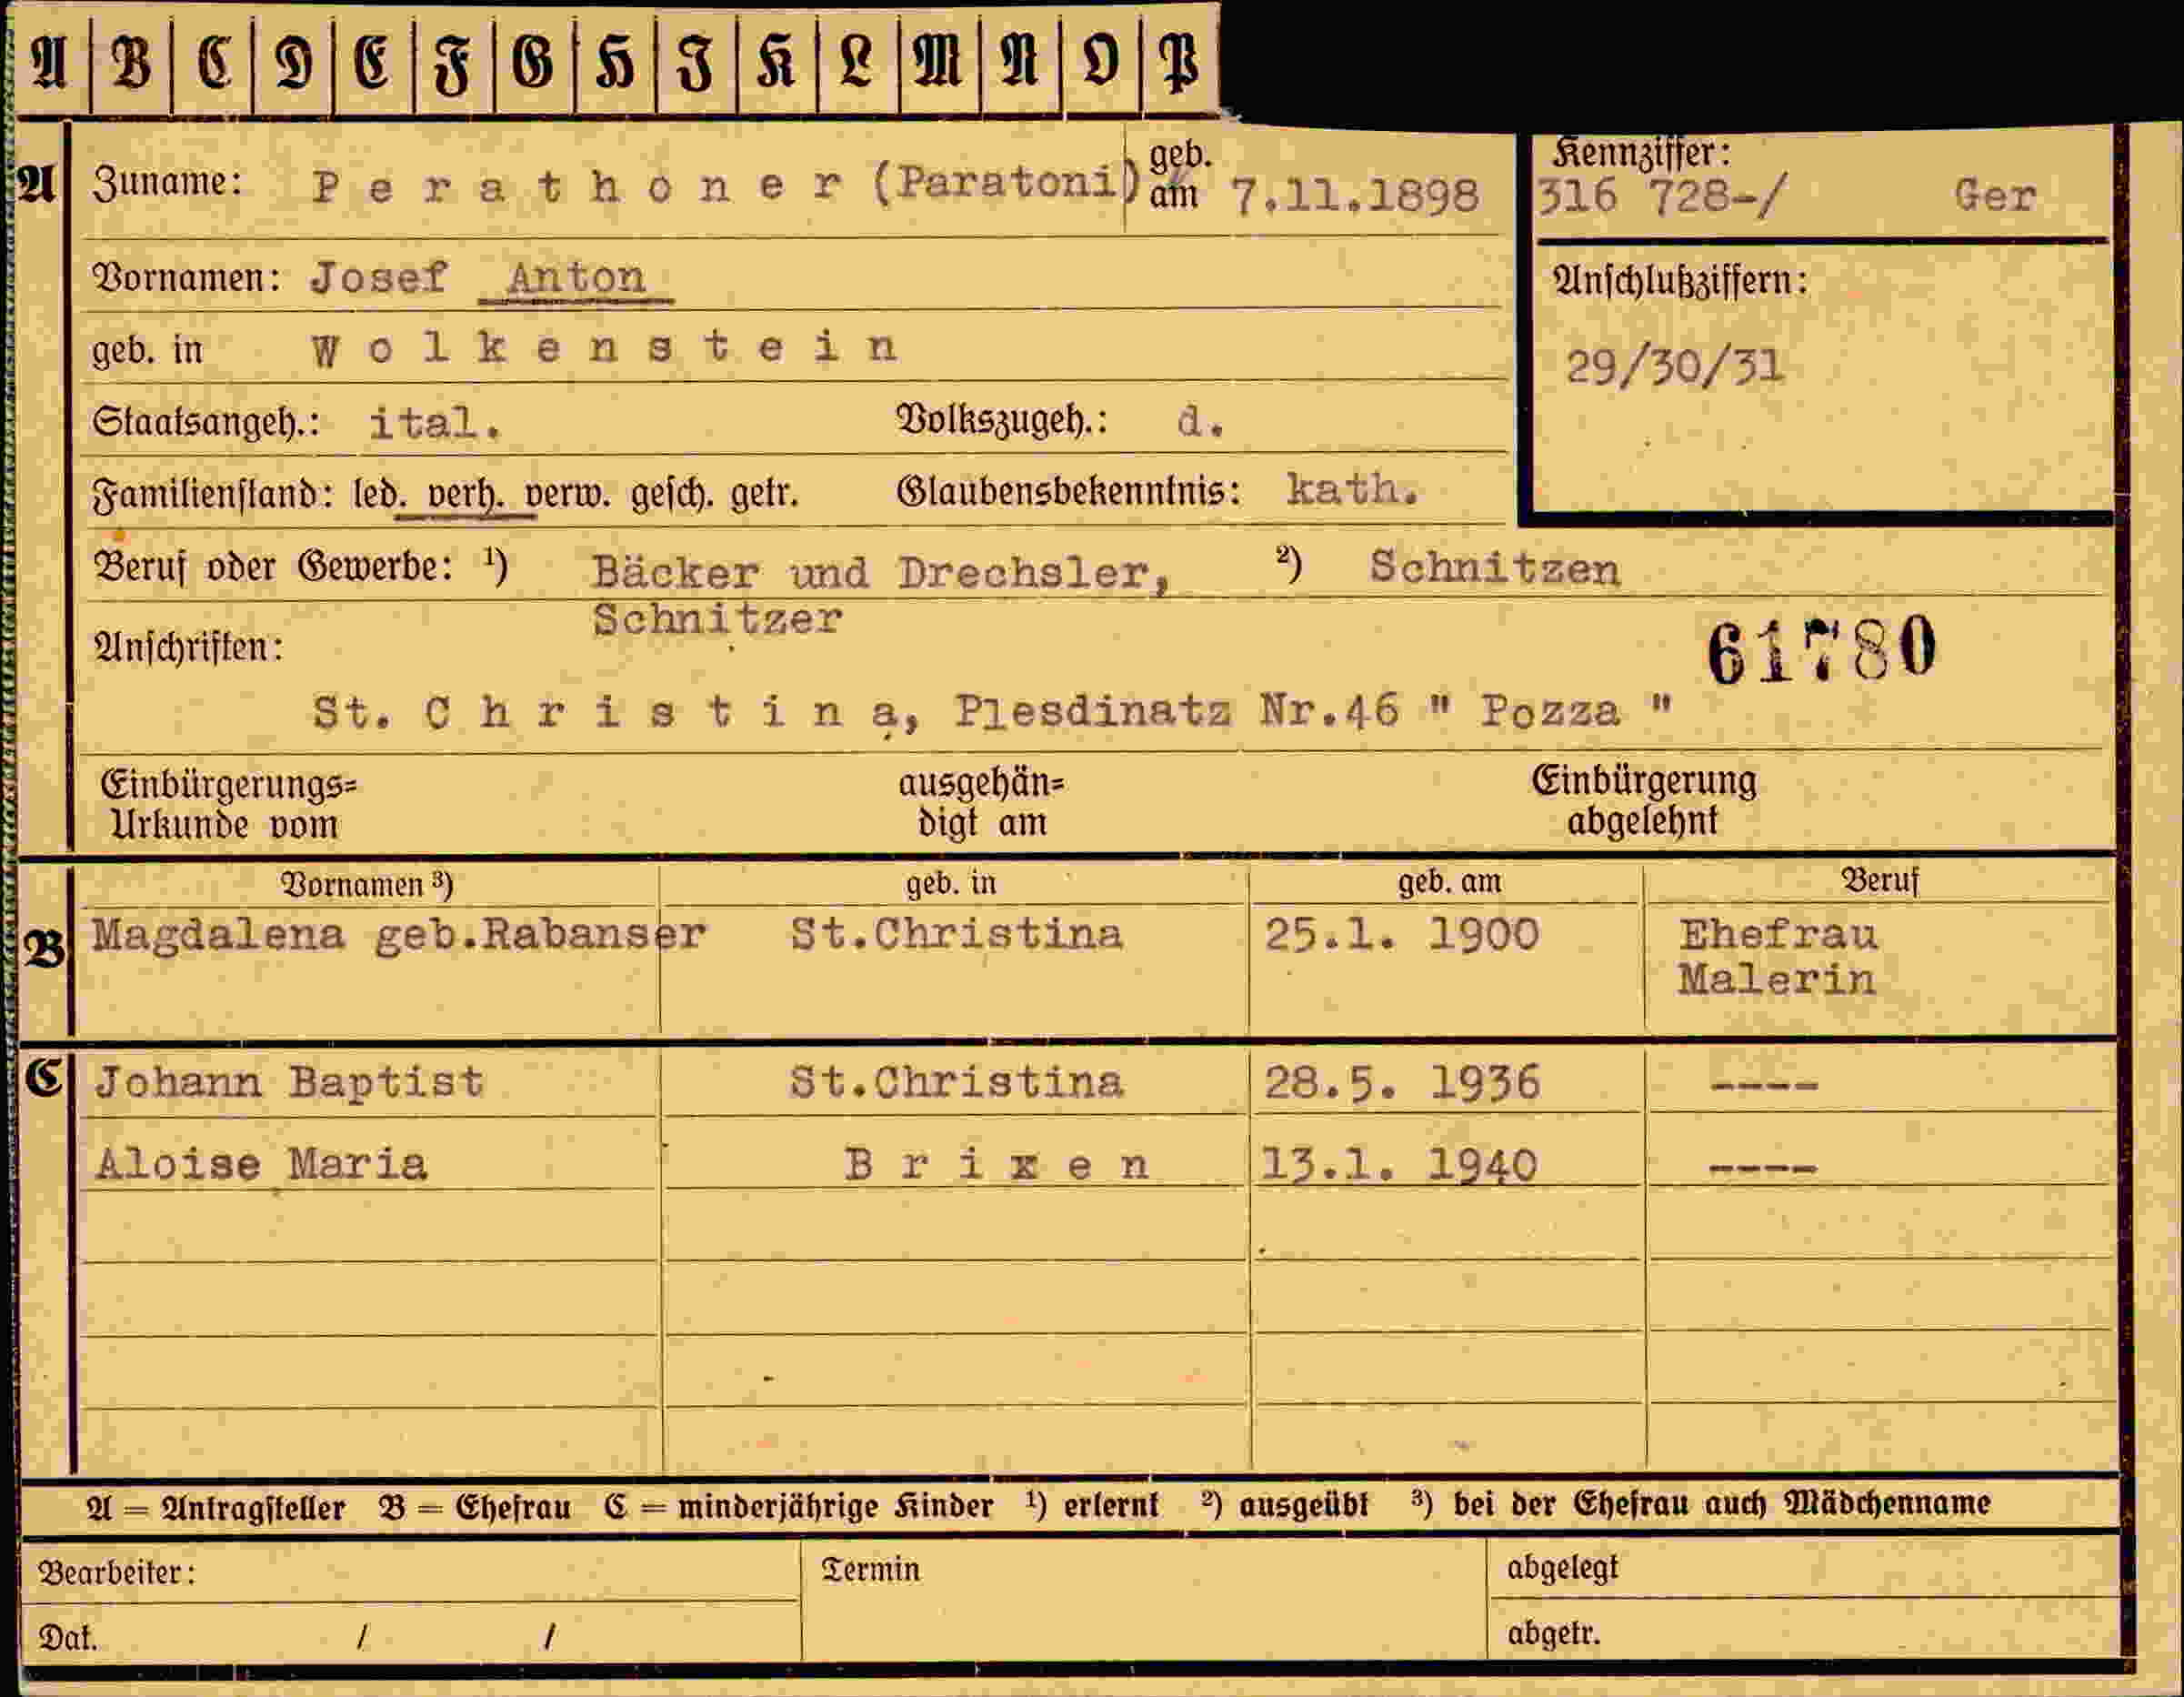 A B C D E F G H J K L M N O P
A Zuname: Perathoner (Paratoni) geb. am 7.11.1898
Kennziffer:
316 728-/ Ger
Vornamen: Josef Anton
Anschlußziffern:
geb. in Wolkenstein
29/30/31
Staatsangeh.: ital. Volkszugeh.: d.
Familienstand: led. verh. verw. gesch. getr. Glaubensbekenntnis: kath.
Beruf oder Gewerbe: ¹) Bäcker und Drechsler, ²) Schnitzen
Schnitzer
Anschriften:
61780
St. Christina, Plesdinatz Nr.46 " Pozza "
Einbürgerungs= ausgehän= Einbürgerung
Urkunde vom digt am abgelehnt
Vornamen ³) geb. in geb. am Beruf
B Magdalena geb.Rabanser St.Christina 25.1. 1900 Ehefrau
Malerin
C Johann Baptist St.Christina 28.5. 1936 ----
Aloise Maria Brixen 13.1. 1940 ----
A = Antragsteller B = Ehefrau C = minderjährige Kinder ¹) erlernt ²) ausgeübt ³) bei der Ehefrau auch Mädchenname
Bearbeiter: Termin abgelegt
Dat. / / abgetr.